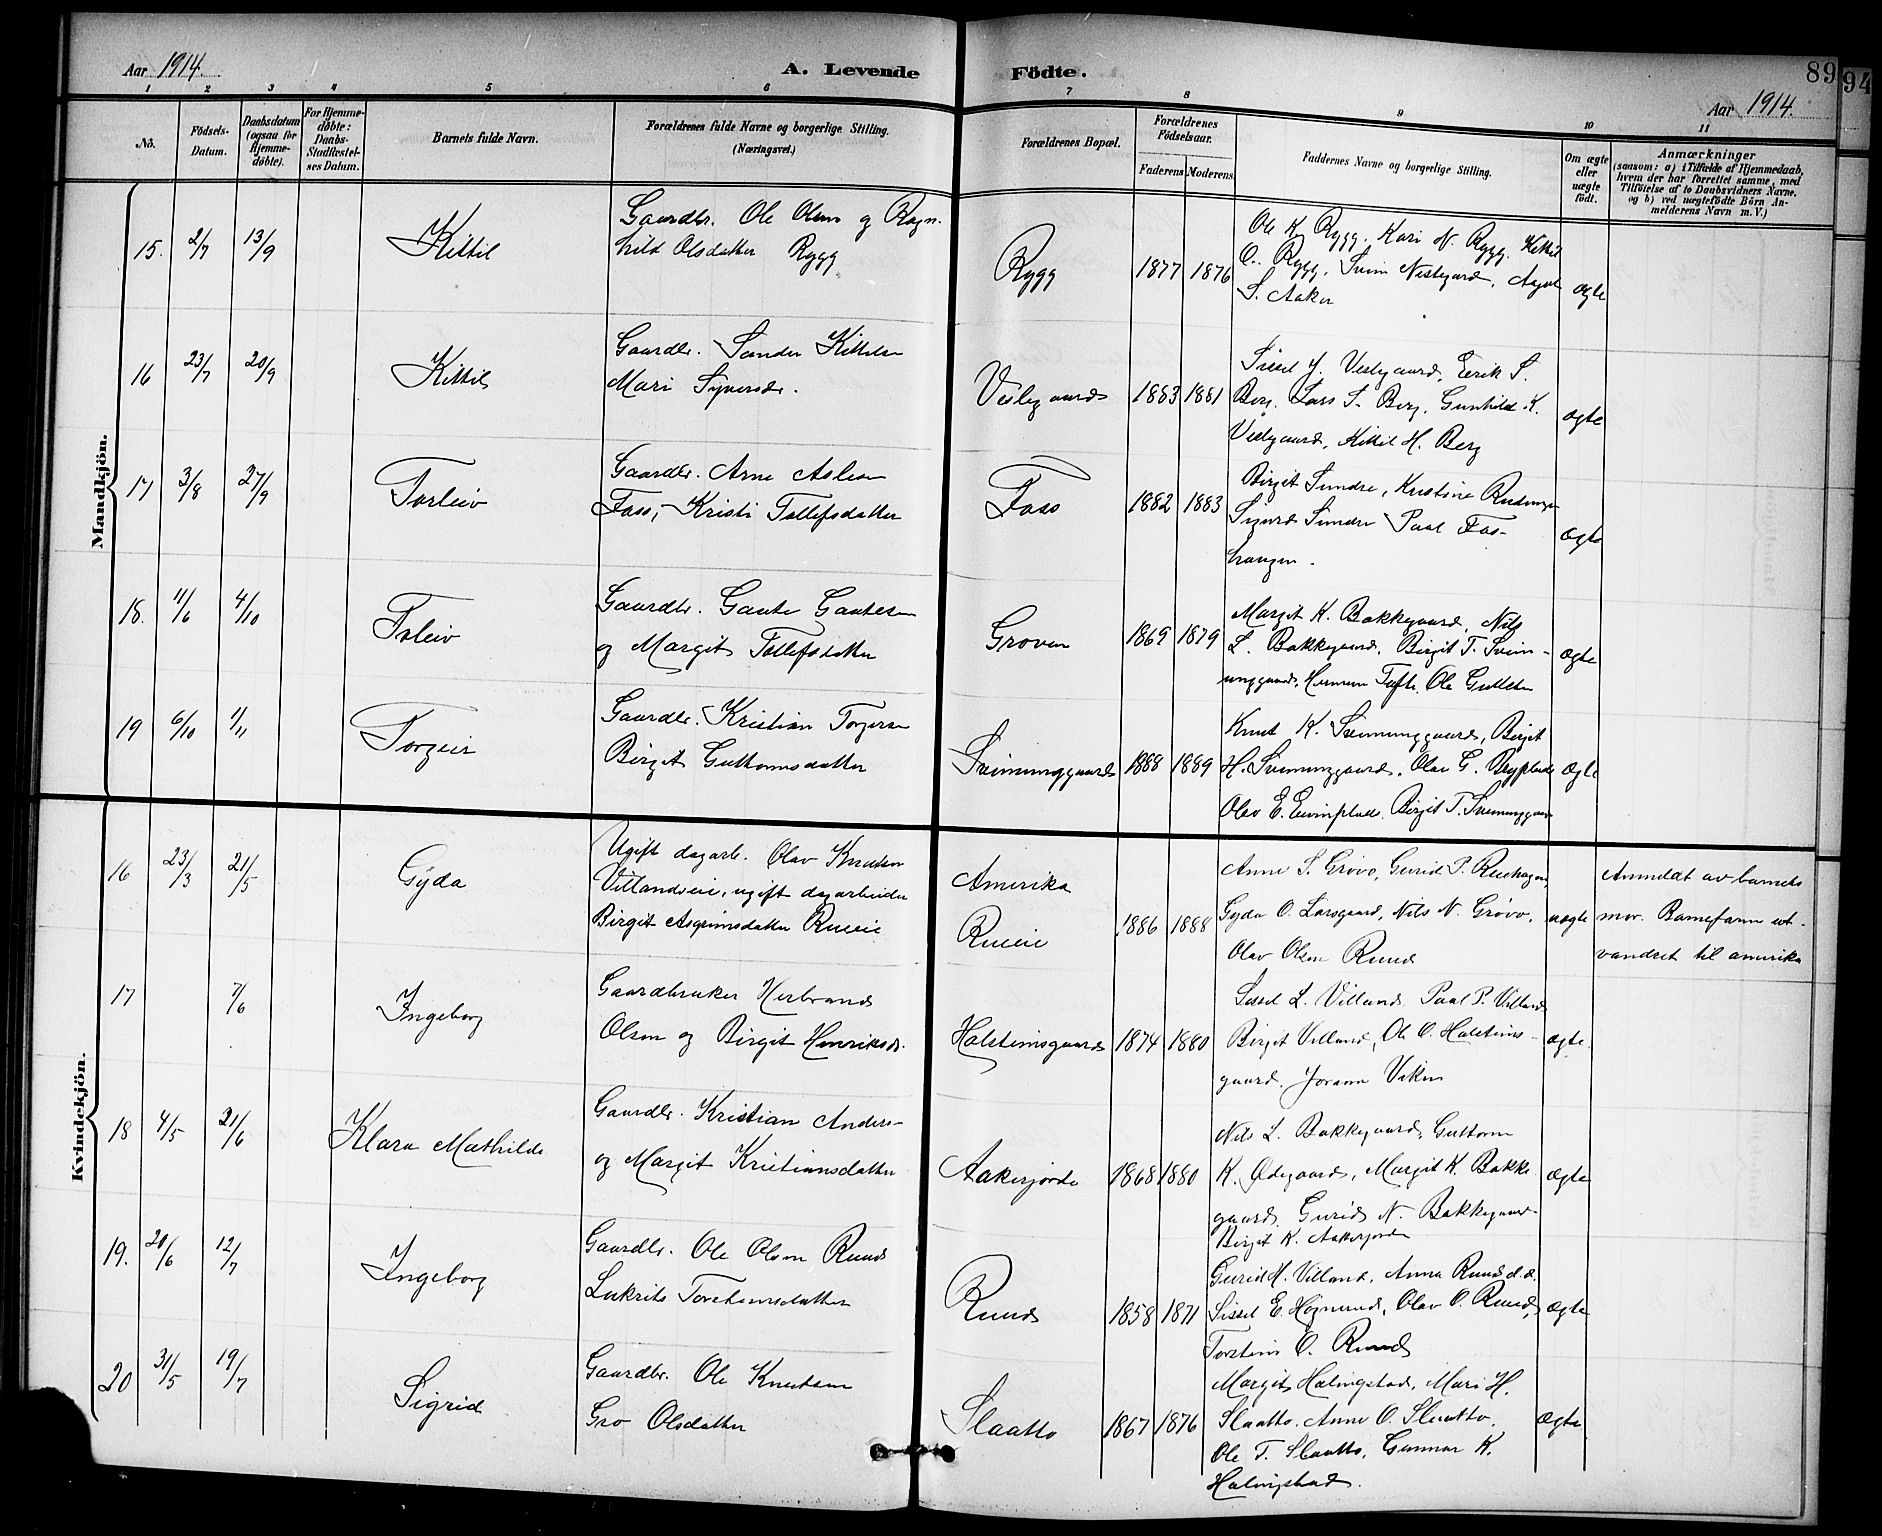 Aar 1914. A. Levende Födte. 89 94
Aar 1914.
1 2 3 4 5 6 7 8 9 10 11
No.
Födsels-Datum.
Daabsdatum (ogsaa for Hjemmedöbte).
For Hjemmedøbte: Daabs-Stadfæstelses Datum.
Barnets fulde Navn.
Forældrenes fulde Navne og borgerlige Stilling. (Næringsvei.)
Forældrenes Bopæl.
Forældrenes Födselsaar.
Faderens Moderens
Faddernes Navne og borgerlige Stilling.
Om ægte eller uægte født.
Anmærkninger
(saasom: a) i Tilfælde af Hjemmedaab,
hvem der har forrettet samme, med
Tilföielse af to Daabsvidners Navne,
og b) ved uægtefödte Börn An-
melderens Navn m.V.)
Mandkjön.
15. 2/7 13/9 Kittil
Gaardbr. Ole Olsen og Ragn-
hild Olsdatter Rygg
Rygg 1877 1876
Ole K. Rygg, Kari N. Rygg, Kittil
O. Rygg, Svein Nestegard,
S. Aaker
ægte
16 23/7 20/9 Kittil
Gaardbr. Sander Kittelsen
Mari Syversdr.
Veslegaard 1883 1881
Sissel Y. Veslegaard, Eerik S.
Berg, Lars S. Berg, Gunhild K.
Veslegaard, Kittil H. Berg
ægte
17 3/8 27/9 Torleiv
Gaardbr. Arne Aslesen
Foss, Kristi Tollefsdatter
Foss 1882 1883
Birgit Sundre, Kristine
Sigurd Sundre Paal Fos-
haugen.
ægte
18. 11/6 4/10 Toleiv
Gaardbr. Gaute Gautesen
og Margit Tollefsdatter
Groven 1869 1879
Margit K. Bakkegaard, Nils
L. Bakkegaard, Birgit T. Svein-
unggaard, Herman Tufte, Ole Gulleksen
ægte
19 6/10 1/11 Torgeir
Gaardbr. Kristian Torgersen
Birgit Guttormsdatter
Sveinunggaard 1888 1889
Knut K. Sveinunggaard, Birgit
H. Sveinunggaard, Olav G.
Olav E. Eivinplads. Birgit T. Sveinunggaard
ægte
Kvindekjön.
16 23/3 21/5 Gyda
Ugift dagarb. Olav Knutsen
Villandseie, ugift dagarbeider
Birgit Asgrimsdatter Rueeie
Amerika
Rueeie 1886 1888
Anne S. Grøvo, Gurid P. Ruehagen,
Gyda O. Larsgaard, Nils N. Grøvo,
Olav Olsen Ruud
uægte
Anmeldt av barnets
mor. Barnefaren ut-
vandret til amerika
17 7/6 Ingeborg
Gaardbruker Herbrand
Olsen og Birgit Henriksd.
Halsteinsgaard 1874 1880
Sissel L. Villand, Paal P. Villand
Birgit Villand, Ole O. Halsteins-
gaard, Joraan Viken
ægte.
18 4/5 21/6 Klara Mathilde
Gaardbr. Kristian Anders-
og Margit Kristiansdatter
Aakerjorde 1868 1880
Nils L. Bakkegaard, Guttorm
K. Ødegaard, Margit K. Bakke
gaard, Gurid N. Bakkegaard
Birgit K. Aakerjorde
ægte
19. 20/6 12/7 Ingeborg
Gaardbr. Ole Olsen Ruud
Lukrits Torsteinsdatter
Ruud 1858 1871
Gurid H. Villand, Anna Ruud d.æ.
Sissel E. Høgnerud, Olav O. Ruud,
Torstein O. Ruud
ægte
20 31/5 19/7 Sigrid
Gaardbr. Ole Knutsen
Gro Olsdatter
Slaatto 1867 1876
Margit Halingstad, Mari H.
Slaatto, Anne O. Slaatto,
Ole T. Slaatto, Gunnar K.
Halingstad.
ægte